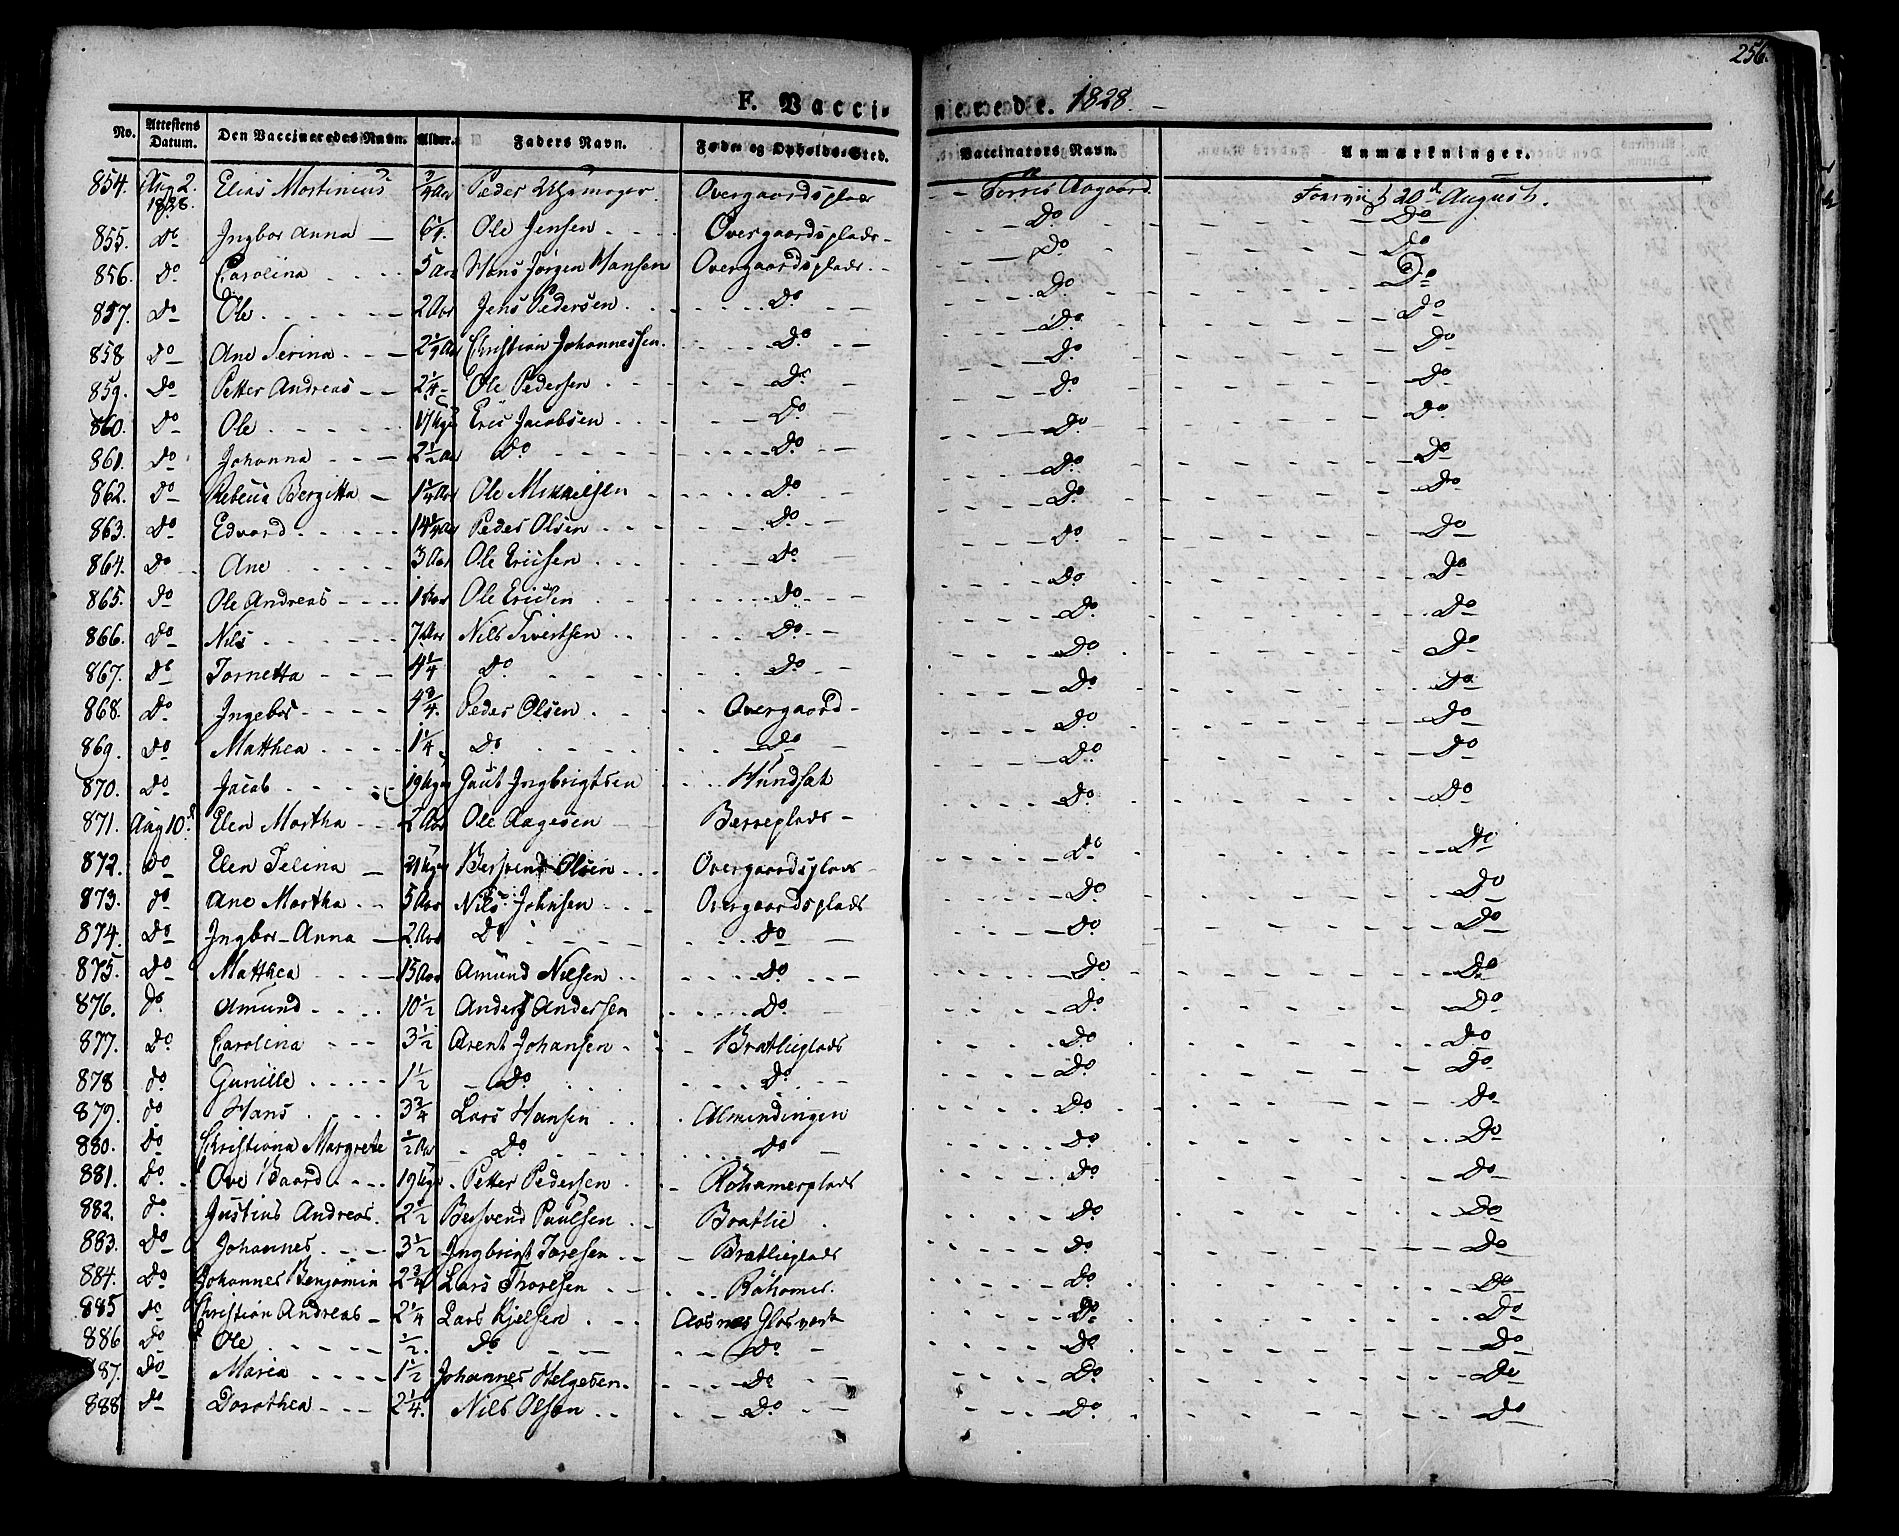 256.
F. Vaccinerede. 1828.
No. Attestens Datum. Den Vaccineredes Navn. Alder. Faders Navn. Føde og Opholds-Sted. Vaccinators Navn. Anmærkninger.
854. Aug 2. 1828. Elias Mortinius 3/4 Aar Peder Overgaardsplads Torris Aagaard 20d August.
855. Do Ingbor Anna Ole Jensen Overgaardsplads Do Do
856. Do Carolina 5 Aar Hans Jørgen Hansen Overgaardsplads Do Do
857. Do Ole 2 Aar Jens Pedersen Do Do Do
858 Do Ane Serina Christian Johannessen. Do Do Do
859. Do Petter Andreas 2 1/4 Ole Pedersen Do Do Do
860. Do Ole Eric Jacobsen Do Do Do
861. Do Johanna 2 1/2 Aar Do Do Do Do
862. Do Rebecca Bergitta 1 1/4 Aar Ole Mikkelsen Do Do Do
863. Do Edvard 14 1/4 Aar Peder Olsen Do Do Do
864. Do Ane 3 Aar Ole Ericsen Do Do Do
865. Do Ole Andreas 1 Aar Ole Ericsen Do Do Do
866. Do Nils 7 Aar Nils Sivertsen Do Do Do
867. Do Tornetta 4 1/4 Do Do Do Do
868. Do Ingebor 4 3/4. Peder Olsen Overgaard Do Do
869. Do Matthea 1 1/4 Do Do Do Do
870. Do Jacob 19 Uger Gaut Ingbrigtsen Hundsæt Do Do
871. Aug 10. Elen Martha 2 Aar Ole Aagesen Berreplads Do Do
872. Do Elen Selina 21 Uger Bersvend Olsen Overgaardsplads Do Do
873. Do Ane Martha 5 Aar Nils Johnsen Overgaardsplads Do Do
874. Do Ingbor Anna 2 Aar Do Do Do Do
875. Do Matthea 15 Aar Amund Nilsen Do Do Do
876. Do Amund 10 1/2 Anders Andersen Do Do Do
877. Do Carolina 3 1/2 Arent Johansen Bratlieplads Do Do
878 Do Gunille 1 1/2 Do Do Do Do
879. Do Hans 3 3/4 Lars Hansen Almindingen Do Do
880. Do Christiana Margrete 1/2 Aar Do Do Do Do
881. Do Ove Baard 19 Uger Petter Pedersen Röhamerplads Do Do
882. Do Justius Andreas. 2 1/2 Bersvend Paulsen Bratlie Do Do
883. Do Johannes 3 1/2 Ingbrigt Toresen Bratlieplads Do Do
884. Do Johannes Benjamin 2 3/4 Lars Thoresen Röhamer. Do Do
885 Do Christian Andreas 2 1/4 Lars Kjelsen Aasnes Glasverk Do Do
886 Do Ole 1/2. Do Do Do Do
887. Do Maria 1 1/2 Johannes Helgesen. Do Do Do
888 Do Dorothea 2 1/4. Nils Olsen Do Do Do